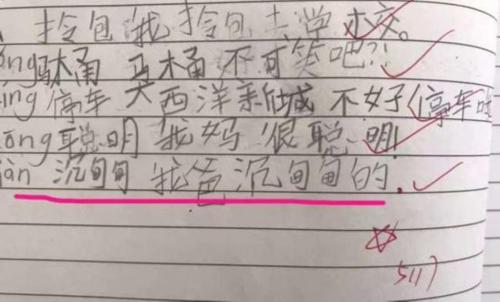 拎包 我拎包去学校。
马桶 马桶不可笑吧?!
ing 停车 大西洋新城不好停车
ōng 聪明 我妈很聪明!
àn 沉甸甸 我爸沉甸甸的.
5117